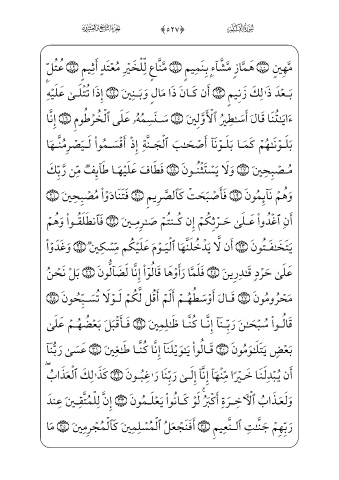 سُورَةُ القَلَمِ ﴿٥٢٧﴾ الجُزْءُ التَّاسِعُ وَالعِشْرُونَ
مَّهِينٍ ۝١٠ هَمَّازٍ مَّشَّآءِۭ بِنَمِيمٍ ۝١١ مَّنَّاعٍ لِّلْخَيْرِ مُعْتَدٍ أَثِيمٍ ۝١٢ عُتُلِّۭ
بَعْدَ ذَٰلِكَ زَنِيمٍ ۝١٣ أَن كَانَ ذَا مَالٍ وَبَنِينَ ۝١٤ إِذَا تُتْلَىٰ عَلَيْهِ
ءَايَٰتُنَا قَالَ أَسَٰطِيرُ ٱلْأَوَّلِينَ ۝١٥ سَنَسِمُهُۥ عَلَى ٱلْخُرْطُومِ ۝١٦ إِنَّا
بَلَوْنَٰهُمْ كَمَا بَلَوْنَآ أَصْحَٰبَ ٱلْجَنَّةِ إِذْ أَقْسَمُوا۟ لَيَصْرِمُنَّهَا
مُصْبِحِينَ ۝١٧ وَلَا يَسْتَثْنُونَ ۝١٨ فَطَافَ عَلَيْهَا طَآئِفٌ مِّن رَّبِّكَ
وَهُمْ نَآئِمُونَ ۝١٩ فَأَصْبَحَتْ كَٱلصَّرِيمِ ۝٢٠ فَتَنَادَوْا۟ مُصْبِحِينَ ۝٢١
أَنِ ٱغْدُوا۟ عَلَىٰ حَرْثِكُمْ إِن كُنتُمْ صَٰرِمِينَ ۝٢٢ فَٱنطَلَقُوا۟ وَهُمْ
يَتَخَٰفَتُونَ ۝٢٣ أَن لَّا يَدْخُلَنَّهَا ٱلْيَوْمَ عَلَيْكُم مِّسْكِينٌ ۝٢٤ وَغَدَوْا۟
عَلَىٰ حَرْدٍ قَٰدِرِينَ ۝٢٥ فَلَمَّا رَأَوْهَا قَالُوٓا۟ إِنَّا لَضَآلُّونَ ۝٢٦ بَلْ نَحْنُ
مَحْرُومُونَ ۝٢٧ قَالَ أَوْسَطُهُمْ أَلَمْ أَقُل لَّكُمْ لَوْلَا تُسَبِّحُونَ ۝٢٨
قَالُوا۟ سُبْحَٰنَ رَبِّنَآ إِنَّا كُنَّا ظَٰلِمِينَ ۝٢٩ فَأَقْبَلَ بَعْضُهُمْ عَلَىٰ
بَعْضٍ يَتَلَٰوَمُونَ ۝٣٠ قَالُوا۟ يَٰوَيْلَنَآ إِنَّا كُنَّا طَٰغِينَ ۝٣١ عَسَىٰ رَبُّنَآ
أَن يُبْدِلَنَا خَيْرًا مِّنْهَآ إِنَّآ إِلَىٰ رَبِّنَا رَٰغِبُونَ ۝٣٢ كَذَٰلِكَ ٱلْعَذَابُ ۖ
وَلَعَذَابُ ٱلْءَاخِرَةِ أَكْبَرُ ۚ لَوْ كَانُوا۟ يَعْلَمُونَ ۝٣٣ إِنَّ لِلْمُتَّقِينَ عِندَ
رَبِّهِمْ جَنَّٰتِ ٱلنَّعِيمِ ۝٣٤ أَفَنَجْعَلُ ٱلْمُسْلِمِينَ كَٱلْمُجْرِمِينَ ۝٣٥ مَا